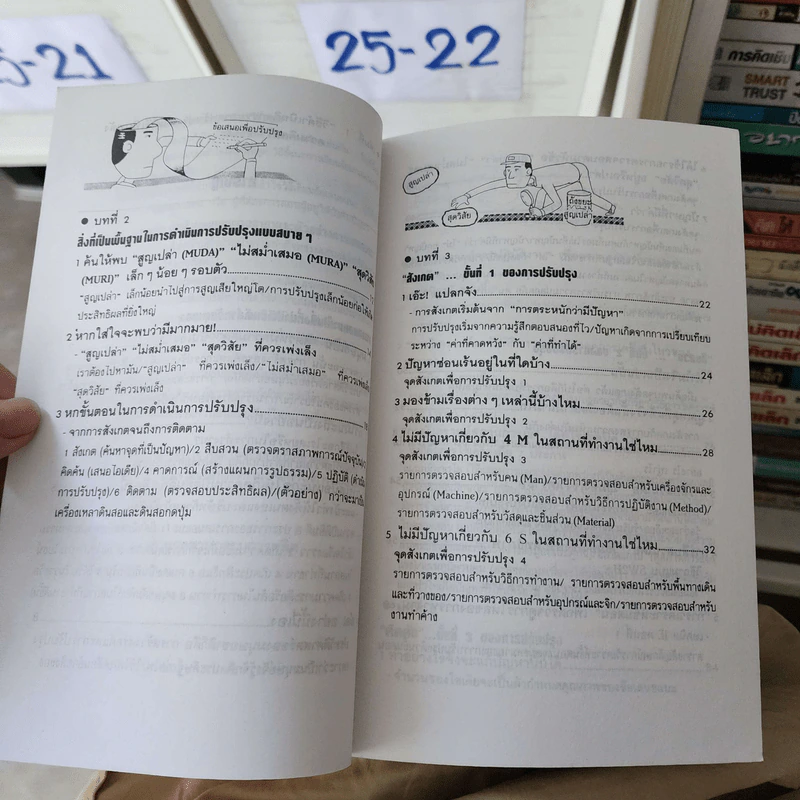 5-21
25-22
การคิดเชิง
SMART
TRUST
ข้อเสนอเพื่อปรับปรุง
● บทที่ 2
สิ่งที่เป็นพื้นฐานในการดำเนินการปรับปรุงแบบสบาย ๆ
1 ค้นให้พบ “สูญเปล่า (MUDA)” “ไม่สม่ำเสมอ (MURA)” “สุดวิสัย
(MURI)” เล็ก ๆ น้อย ๆ รอบตัว
“สูญเปล่า” เล็กน้อยนำไปสู่การสูญเสียใหญ่โต/การปรับปรุงเล็กน้อยก่อให้เกิด
ประสิทธิผลที่ยิ่งใหญ่
2 หากใส่ใจจะพบว่ามีมากมาย!
- “สูญเปล่า” “ไม่สม่ำเสมอ” “สุดวิสัย” ที่ควรเพ่งเล็ง
เราต้องไปหามัน/“สูญเปล่า” ที่ควรเพ่งเล็ง/“ไม่สม่ำเสมอ” ที่ควรเพ่งเล็ง
“สุดวิสัย” ที่ควรเพ่งเล็ง
3 หกขั้นตอนในการดำเนินการปรับปรุง
- จากการสังเกตจนถึงการติดตาม
1 สังเกต (ค้นหาจุดที่เป็นปัญหา)/2 สืบสวน (ตรวจตราสภาพการณ์ปัจจุบัน)/
คิดค้น (เสนอไอเดีย)/4 คาดการณ์ (สร้างแผนการรูปธรรม)/5 ปฏิบัติ
การปรับปรุง)/6 ติดตาม (ตรวจสอบประสิทธิผล)/(ตัวอย่าง) กว่าจะมาเป็น
เครื่องเหลาดินสอและดินสอกดปุ่ม
สูญเปล่า
สุดวิสัย
ถังขยะ
สูญเปล่า
● บทที่ 3
“สังเกต” ... ขั้นที่ 1 ของการปรับปรุง
1 เอ๊ะ! แปลกจัง 22
- การสังเกตเริ่มต้นจาก “การตระหนักว่ามีปัญหา”
การปรับปรุงเริ่มจากความรู้สึกตอบสนองที่ไว/ปัญหาเกิดจากการเปรียบเทียบ
ระหว่าง “ค่าที่คาดหวัง” กับ “ค่าที่ทำได้”
2 ปัญหาซ่อนเร้นอยู่ในที่ใดบ้าง 24
จุดสังเกตเพื่อการปรับปรุง 1
3 มองข้ามเรื่องต่าง ๆ เหล่านี้บ้างไหม 26
จุดสังเกตเพื่อการปรับปรุง 2
4 ไม่มีปัญหาเกี่ยวกับ 4 M ในสถานที่ทำงานใช่ไหม 28
จุดสังเกตเพื่อการปรับปรุง 3
รายการตรวจสอบสำหรับคน (Man)/รายการตรวจสอบสำหรับเครื่องจักรและ
อุปกรณ์ (Machine)/รายการตรวจสอบสำหรับวิธีการปฏิบัติงาน (Method)/
รายการตรวจสอบสำหรับวัสดุและชิ้นส่วน (Material)
5 ไม่มีปัญหาเกี่ยวกับ 6 S ในสถานที่ทำงานใช่ไหม 32
จุดสังเกตเพื่อการปรับปรุง 4
รายการตรวจสอบสำหรับวิธีการทำงาน/ รายการตรวจสอบสำหรับพื้นทางเดิน
และที่วางของ/รายการตรวจสอบสำหรับอุปกรณ์และจิก/รายการตรวจสอบสำหรับ
งานทำค้าง